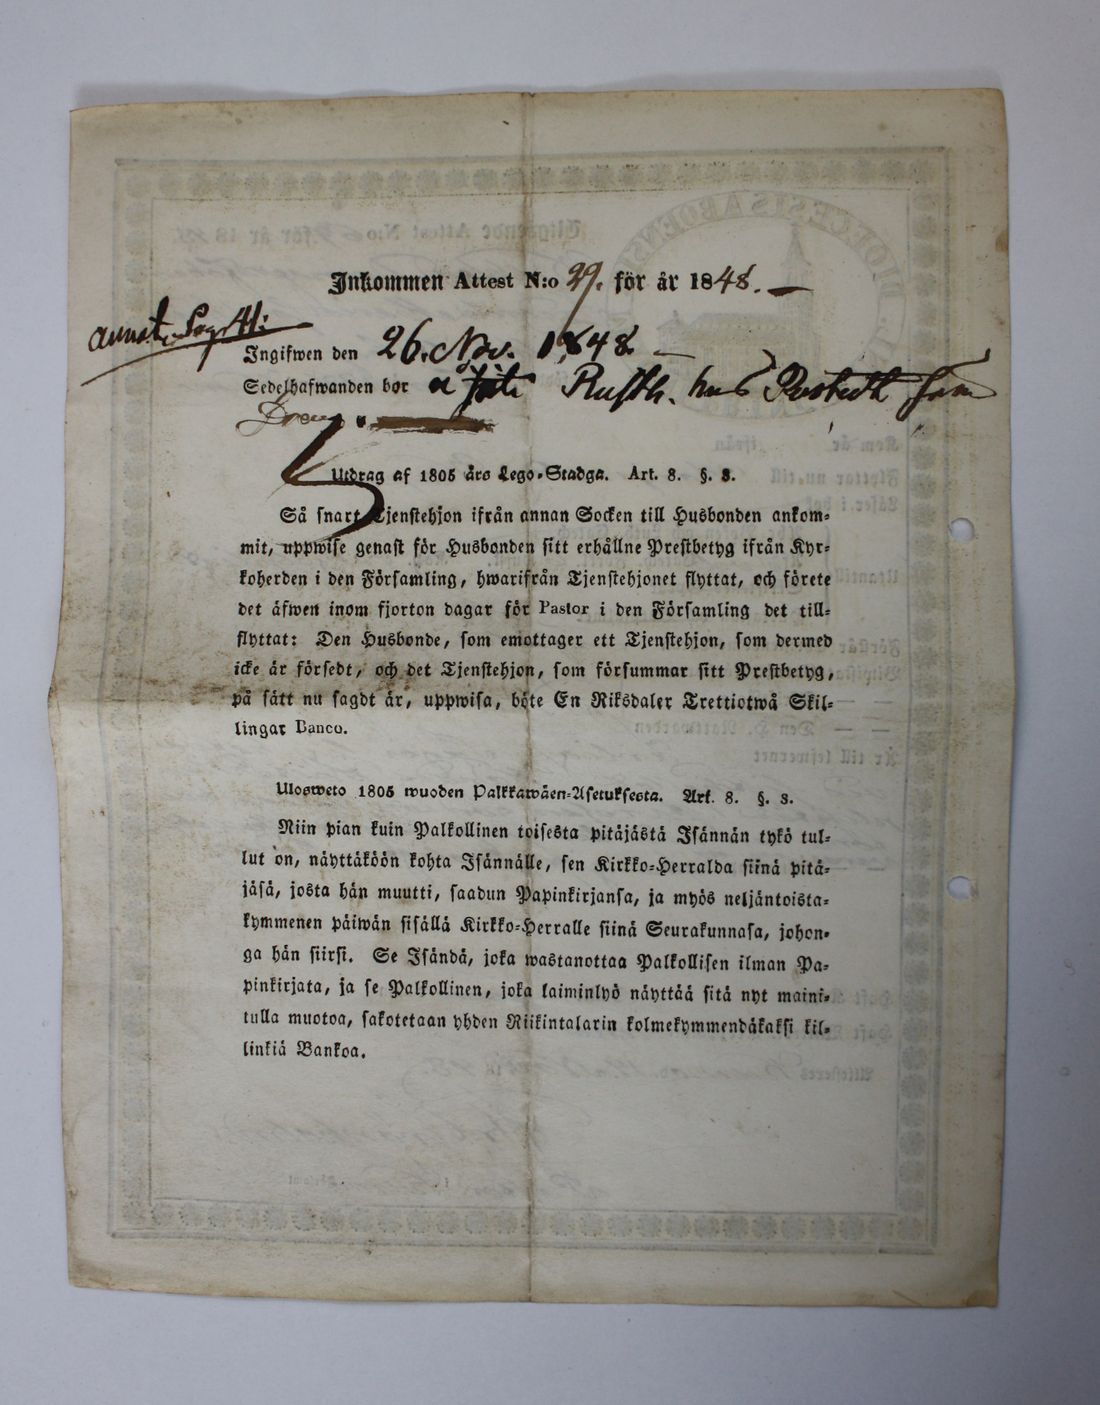 Inkommen Attest N:o 29. för år 1848.
Ingifwen den 26. Nov. 1848
Sedelhafwanden bor å Rusth. hos som
Dräng
Utdrag af 1805 års Lego-Stadga. Art. 8. §. 3.
Så snart Tjenstehjon ifrån annan Socken till Husbonden ankom-
mit, uppwise genast för Husbonden sitt erhållne Prestbetyg ifrån Kyr-
koherden i den Församling, hwarifrån Tjenstehjonet flyttat, och förete
det äfwen inom fjorton dagar för Pastor i den Församling det till-
flyttat: Den Husbonde, som emottager ett Tjenstehjon, som dermed
icke är försedt, och det Tjenstehjon, som försummar sitt Prestbetyg,
på sätt nu sagdt är, uppwisa, böte En Riksdaler Trettiotwå Skil-
lingar Banco.
Ulosweto 1805 wuoden Palkkawäen-Asetuksesta. Art. 8. §. 3.
Niin pian kuin Palkollinen toisesta pitäjästä Isännän tykö tul-
lut on, näyttäköön kohta Isännälle, sen Kirkko-Herralda siinä pitä-
jäsä, josta hän muutti, saadun Papinkirjansa, ja myös neljäntoista-
kymmenen päiwän sisällä Kirkko-Herralle siinä Seurakunnasa, johon-
ga hän siirsi. Se Isändä, joka wastanottaa Palkollisen ilman Pa-
pinkirjata, ja se Palkollinen, joka laiminlyö näyttää sitä nyt maini-
tulla muotoa, sakotetaan yhden Riikintalarin kolmekymmendäkaksi kil-
linkiä Bankoa.